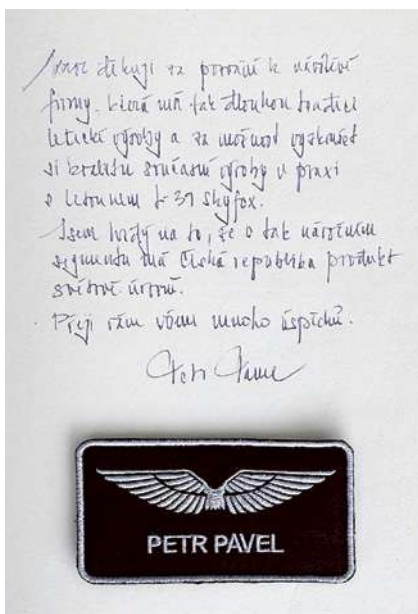 Moc děkuji za pozvání k návštěvě
firmy, která má tak dlouhou tradici
letecké výroby a za možnost vyzkoušet
si kvalitu současné výroby v praxi
s letounem L-39 Skyfox.
Jsem hrdý na to, že v tak náročném
segmentu má Česká republika produkt
světové úrovně.
Přeji vám všem mnoho úspěchů.
Petr Pavel
PETR PAVEL